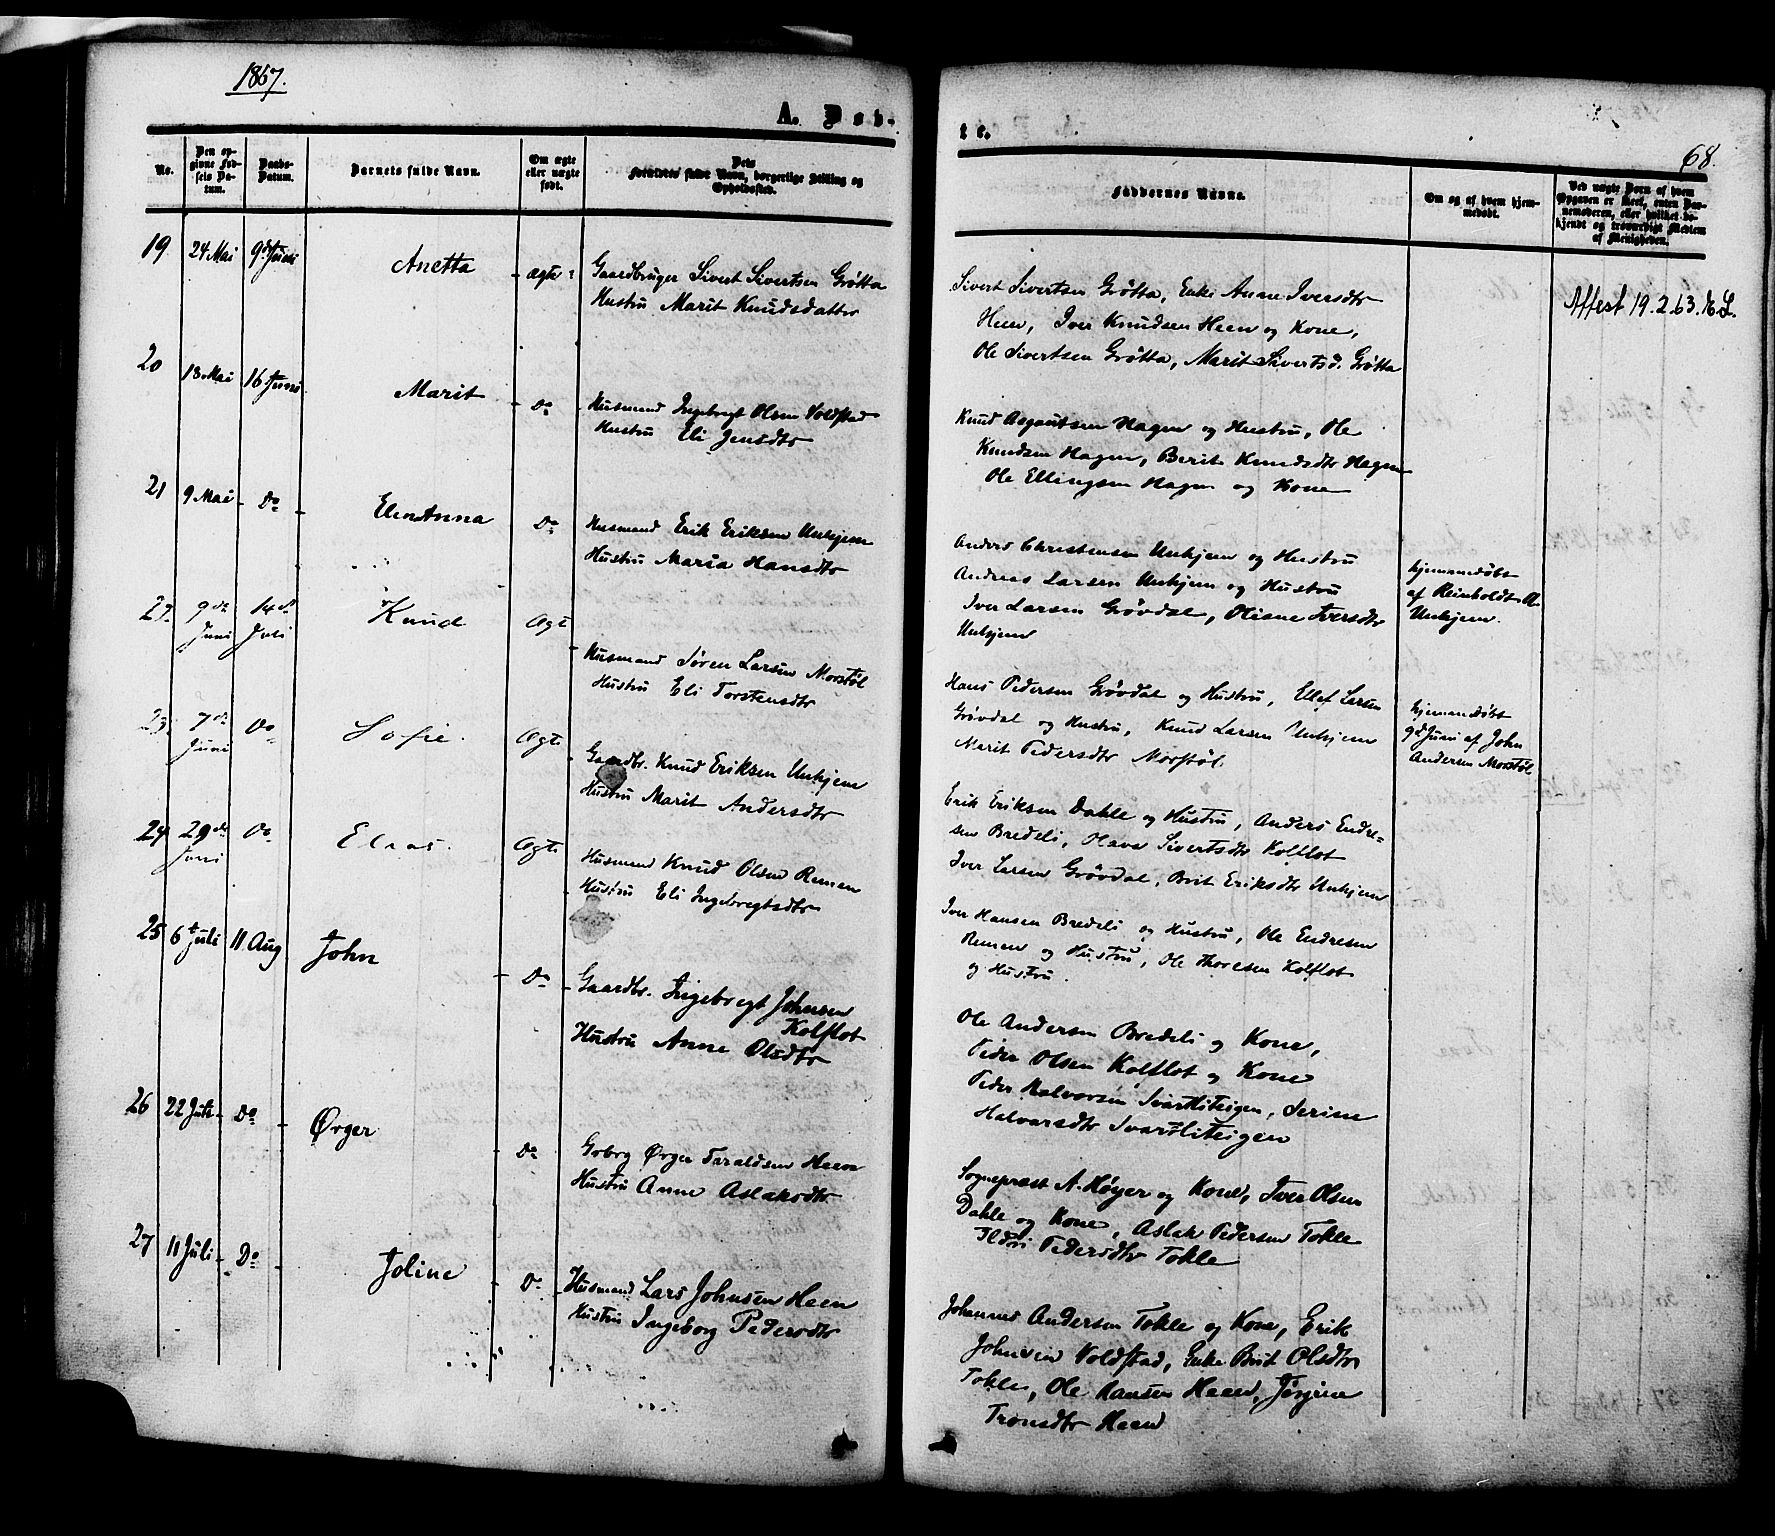 1867.
A. Døb-
te.
68.
No.
Den op-
givne Fød-
sels Da-
tum.
Daabs-
Datum.
Barnets fulde Navn.
Om ægte
eller uægte
født.
Dets
Forældres fulde Navn, borgerlige Stilling og
Opholdssted.
Faddernes Navne.
Om og af hvem hjem-
medøbt.
Ved uægte Børn af hvem
Opgaven er skeet, enten Bar-
nemoderen, eller hvilket be-
kjendt og troværdigt Medlem
af Menigheden.
19 24 Mai 9de Juni Anetta Ægte
Gaardbruger Sivert Sivertsen Grøtta
Hustru Marit Knudsdatter
Sivert Sivertsen Grøtta, Enke Anne Iversdtr
Heen, Iver Knudsen Heen og Kone,
Ole Sivertsen Grøtta, Marit Sivertsd. Grøtta
Attest 19.2.63.
20 13 Mai 16 Juni Marit Do
Husmand Ingebregt Olsen Voldstad
Hustru Eli Jensdtr
Knud Asgautsen Hagen og Hustru, Ole
Knudsen Hagen, Berit Knudsdtr Hagen
Ole Ellingsen Hagen og Kone
21 9 Mai Do Elen Anna Do
Husmand Erik Eriksen Unhjem
Hustru Maria Hansdtr
Anders Christensen Unhjem og Hustru
Andreas Larsen Unhjem og Hustru
Iver Larsen Grøvdal, Oliane Iversdtr
Unhjem
hjemmedøbt
af Reinholdt A.
Unhjem.
22. 9de Juni 14de Juli Knud Ægt
Husmand Søren Larsen Morstøl
Hustru Eli Torstensdtr
Hans Pedersen Grøvdal og Hustru, Ellef Larsen
Grøvdal og Hustru, Knud Larsen Unhjem
Marit Pedersdtr Morstøl.
hjemmedøbt
9d Juni af John
Andersen Morstøl
23. 7de Juni Do Sofie. Ægt.
Gaardbr. Knud Eriksen Unhjem
Hustru Marit Andersdtr
Erik Eriksen Dahle og Hustru, Anders Endre-
sen Bredeli, Olava Sivertsdtr Kolflot
Iver Larsen Grøvdal, Brit Eriksdtr Unhjem
24 29de Juni Do Elias. Ægt.
Husmand Knud Olsen Remen
Hustru Eli Ingebregtsdtr
Iver Hansen Bredeli og Hustru, Ole Endresen
Remen og Hustru, Ole Thoresen Kolflot
og Hustru.
25 6t Juli 11 Aug John Do
Gaardbr. Ingebregt Johnsen
Kolflot
Hustru Anne Olsdtr
Ole Andersen Bredeli og Kone,
Peder Olsen Kolflot og Kone
Peder Halvorsen Svartliteigen, Serine
Halvorsdtr Svartliteigen
26 22 Juli Do Ørger Do
Gbrg Ørger Taraldsen Heen
Hustru Anne Aslaksdtr
Sognepræst A. Høyer og Kone, Iver Olsen
Dahle og Kone, Aslak Pedersen Tokle
Ildri Pedersdtr Tokle
27 11 Juli Do Joline Do
Husmand Lars Johnsen Heen
Hustru Ingeborg Pedersdtr
Johannes Andersen Tokle og Kone, Erik
Johnsen Voldstad, Enke Brit Olsdtr
Tokle, Ole Hansen Heen, Jørgine
Tronsdtr Heen